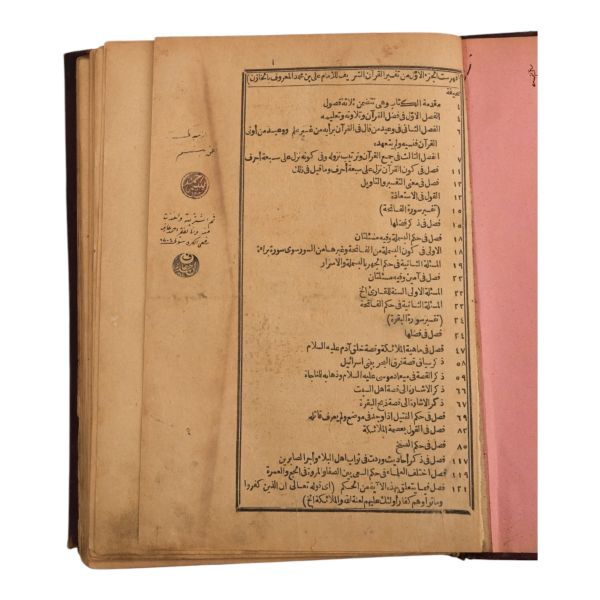 ١
فهرست الجزء الاول من تفسير القرآن الشريف للامام علي بن محمد المعروف بالخازن
صحيفة
٤ مقدمة الكتاب وهي تتضمن ثلاثة فصول
٤ الفصل الاول في فضل القرآن وتلاوته وتعليمه
٦ الفصل الثاني في وعيد من قال في القرآن برأيه من غير علم ووعيد من أوتي
القرآن فنسيه ولم يتعهده
٧ الفصل الثالث في جمع القرآن وترتيب نزوله وفي كونه نزل على سبعة أحرف
١١ فصل في كون القرآن نزل على سبعة أحرف وما قيل في ذلك
١٣ فصل في معنى التفسير والتأويل
١٤ القول في الاستعاذة
١٥ (تفسير سورة الفاتحة)
١٥ فصل في ذكر فضلها
١٨ فصل في حكم البسملة وفيه مسئلتان
١٨ الاولى في كون البسملة من الفاتحة وغيرها من السور سوى سورة براءة
المسئلة الثانية في حكم الجهر بالبسملة والاسرار
فصل في آمين وفيه مسئلتان
المسئلة الاولى السنة للقارئ الخ
المسئلة الثانية في حكم الفاتحة
٢٤ (تفسير سورة البقرة)
٢٤ فصل في فضلها
٤٧ فصل في ماهية الملائكة وقصة خلق آدم عليه السلام
٥٨ ذكر سياق قصة غرق البحر ببني اسرائيل
٥٩ ذكر القصة في ميعاد موسى عليه السلام وذهابه للمناجاة
٦٦ ذكر الاشارة الى قصة اهل السبت
٦٧ ذكر الاشارة الى قصة ذبح البقرة
٦٩ فصل في حكم القتيل اذا وجد في موضع ولم يعرف قاتله
٨٣ فصل في القول بعصمة الملائكة
٨٥ فصل في حكم النسخ
١١٧ فصل في ذكر أحاديث وردت في ثواب اهل البلاء وأجر الصابرين
فصل اختلف العلماء في حكم السعي بين الصفا والمروة في الحج والعمرة
١٢١ فصل فيما يتعلق بهذه الآية من الحكم (اى قوله تعالى ان الذين كفروا
وماتوا وهم كفار أولئك عليهم لعنة الله والملائكة الخ)